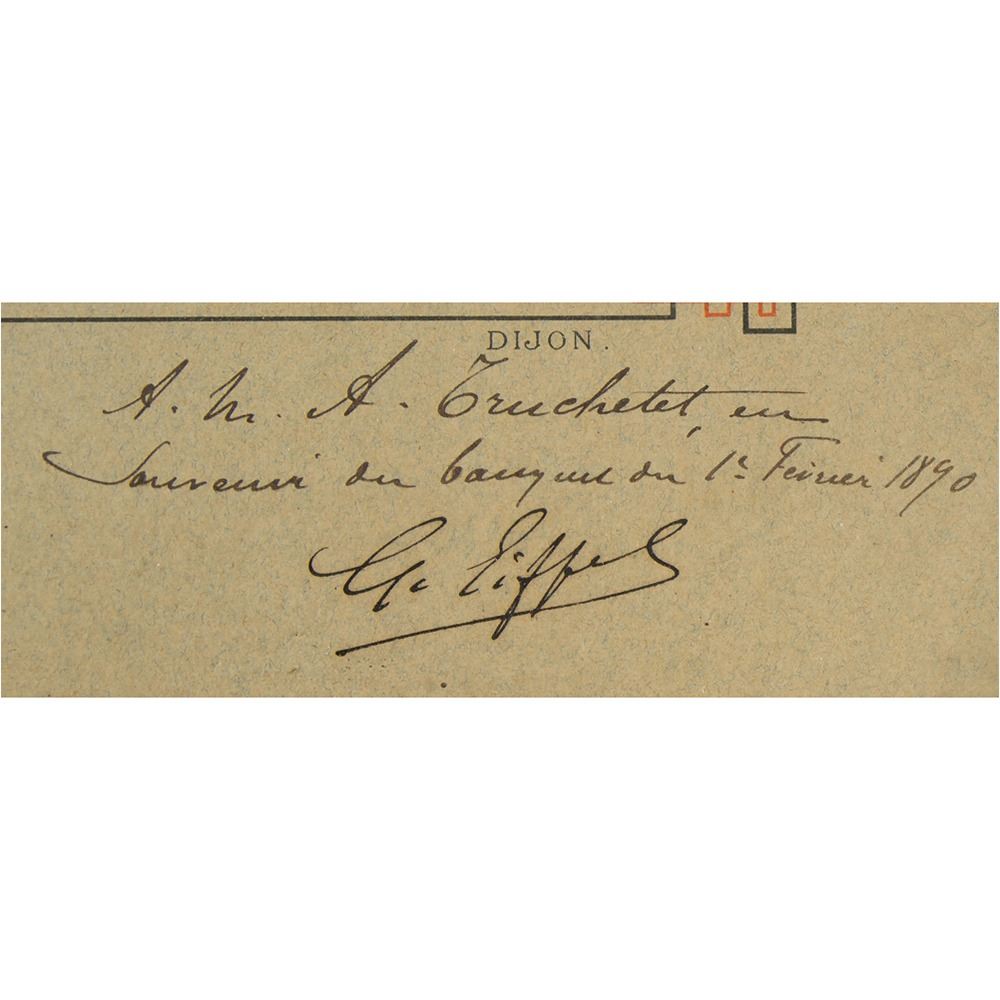 DIJON.
A. M. A. Truchetet, en
Souvenir du banquet du 1er Février 1890
G. Eiffel